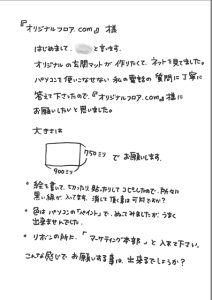 『オリジナルフロア.com』様
はじめまして、 と言います。
オリジナルの玄関マットが作りたくて、ネットを見てました。
パソコンで使いこなせない私の電話の質問に丁寧に
答えて下さったので、『オリジナルフロア.com』様に
お願いしたいと思いました。
大きさは
750ミリ
でお願いします。
900ミリ
* 絵を書いて、切ったり貼ったりしてコピーしたので、所々に
黒い線が入ってます。消して頂く事は可能ですか?
* 色はパソコンの「ペイント」で、ぬってみましたが、うまく
出来ませんでした。
* リボンの所に、「マーケティング本部」と入れて下さい。
こんな感じでお願いする事は、出来ますでしょうか?